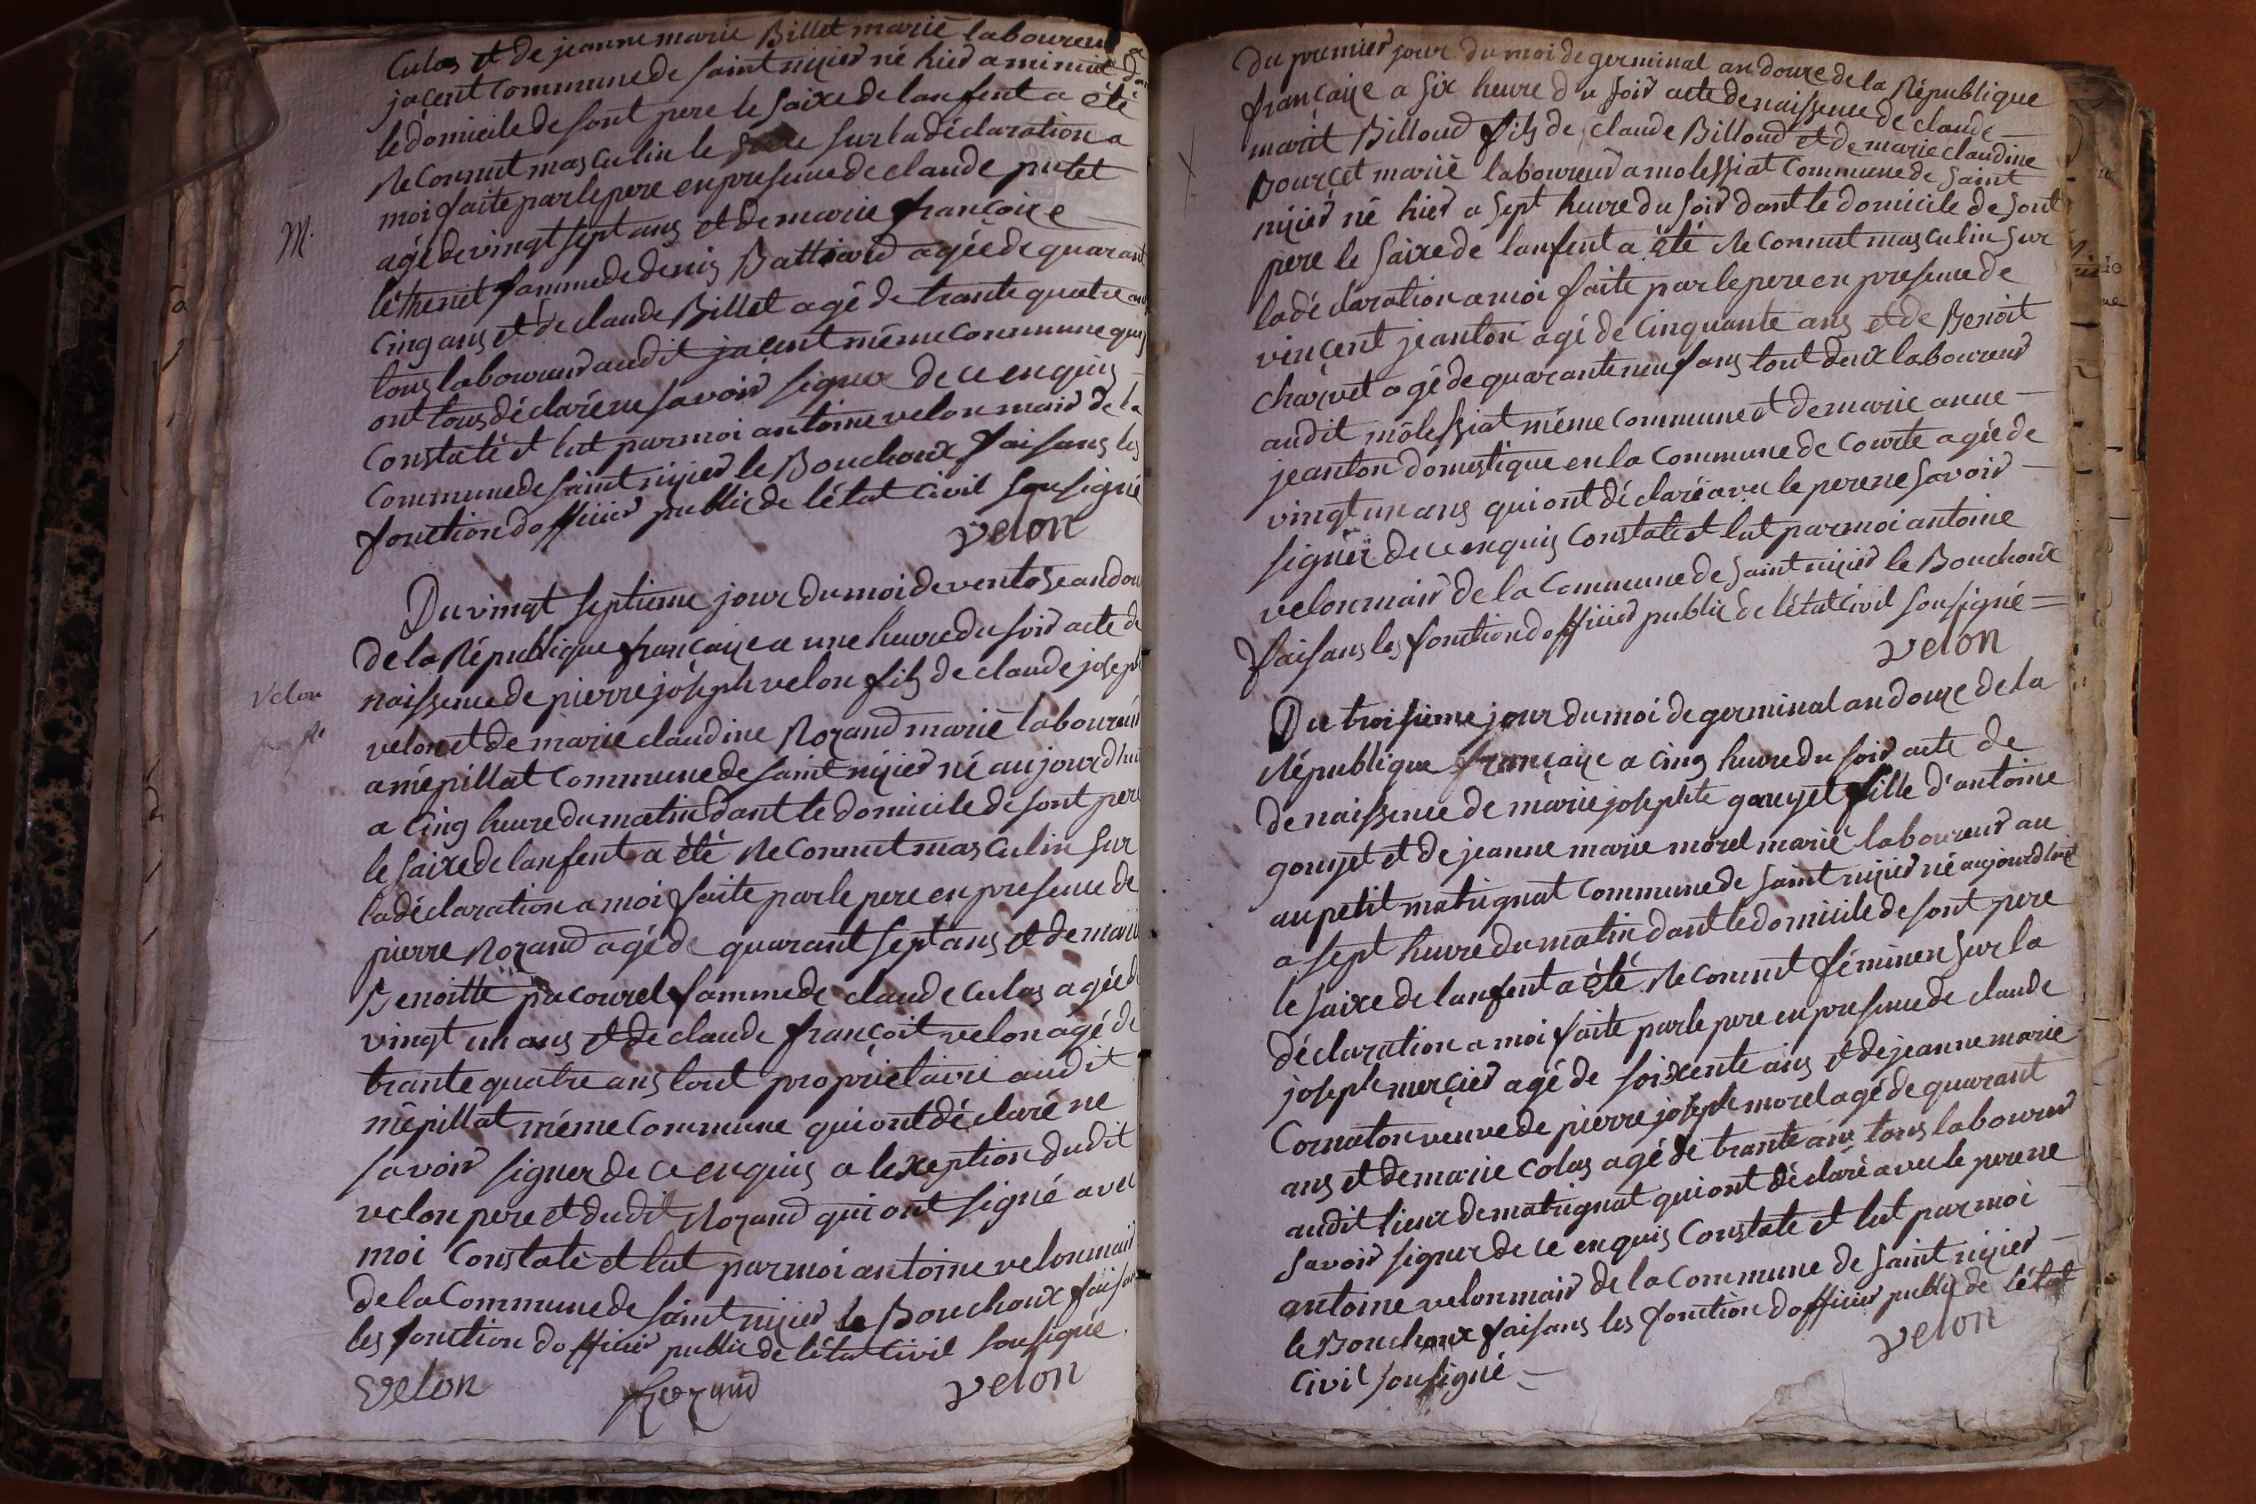 Culas et de jeanne marie Billet marié laboureur a
jacent commune de saint nizier né hier a minuit dan
le domicile de sont pere le saixe de lenfent a été
Reconnut masculin le sur la déclaration a
moi faite par le pere en presence de claude putet
M.
agé de vingt sept ans et de marie françoize
féthenet famme de denis Battiard agée de quarant
cinq ans et de claude Billet agé de trante quatre ans
tous laboureur audit jacent même commune qui
ont tous déclaré ne savoir signer de ce enquis
Constaté et lut par moi antoine velon maid de la
Commune de saint nizier le Bouchoux faisans les
fonction dofficier public de létat civil sousigné
velon
Du vingt septieme jour du moi de ventose an dou
de la République françaize a une heure du soir acte de
naissence de pierre joseph velon fils de claude joseph
Velon
velon et de marie claudine Rozand marié laboureur
a mépillat commune de saint nizier né aujourdhui
a cinq heure du matin dant le domicile de sont pere
le saixe de lanfent a été Reconnut masculin sur
la déclaration a moi faite par le pere en presence de
pierre Rozand agé de quarant sept ans et de marie
Benoitte pacouret famme de claude culas agée de
vingt un ans et de claude françoit velon agé de
trante quatre ans tout propriétaire audit
mépillat méme commune qui ont déclaré ne
savoir signer de ce enquis a lexeption dudit
velon pere et dudit Rozand qui ont signé avec
moi Constaté et lut par moi antoine velon maid
de la Commune de saint nizier le Bouchoux faisan
les fonction dofficier public de létat civil sousigné.
velon Rozand velon
Du premier jour du moi de germinal an douze de la République
françaize a six heure du soir acte de naissence de claude
marit Billoud fils de claude Billoud et de marie claudine
Bourcet marié laboureur a molessiat commune de saint
nizier né hier a sept heure du soir dant le domicile de sont
pere le saixe de lanfent a été Reconnut masculin sur
la déclaration a moi faite par le pere en presence de
vincent jeanton agé de cinquante ans et de Benoit
charvet agé de quarante neuf ans tout deux laboureur
audit môlessiat même commune et de marie anne
jeanton domestique en la commune de Courte agée de
vingt un ans qui ont déclaré avec le pere ne savoir
signer de ce enquis constaté et lut par moi antoine
velon maid de la commune de saint nizier le Bouchoux
faisans les fonction dofficier public de létat civil sousigné
velon
Du troisieme jour du moi de germinal an douze de la
République françaize a cinq heure du soir acte de
de naissence de marie josephte gouyet fille d'antoine
gouyet et de jeanne marie morel marié laboureur au
au petit matrignat commune de saint nizier né aujourdhui
a sept heure du matin dant le domicile de sont pere
le saixe de lanfent a été Reconnut féminen sur la
déclaration a moi faite par le pere en presence de claude
joseph mercier agé de soixente ans et de jeanne marie
Cornaton veuve de pierre joseph morel agé de quarant
ans et de marie Colas agé de trante ans tous laboureur
audit lieux de matrignat qui ont déclaré avec le pere ne
savoir signer de ce enquis Constaté et lut par moi
antoine velon maid de la commune de saint nizier
le Bouchoux faisans les fonction dofficier public de létat
civil sousigné
velon